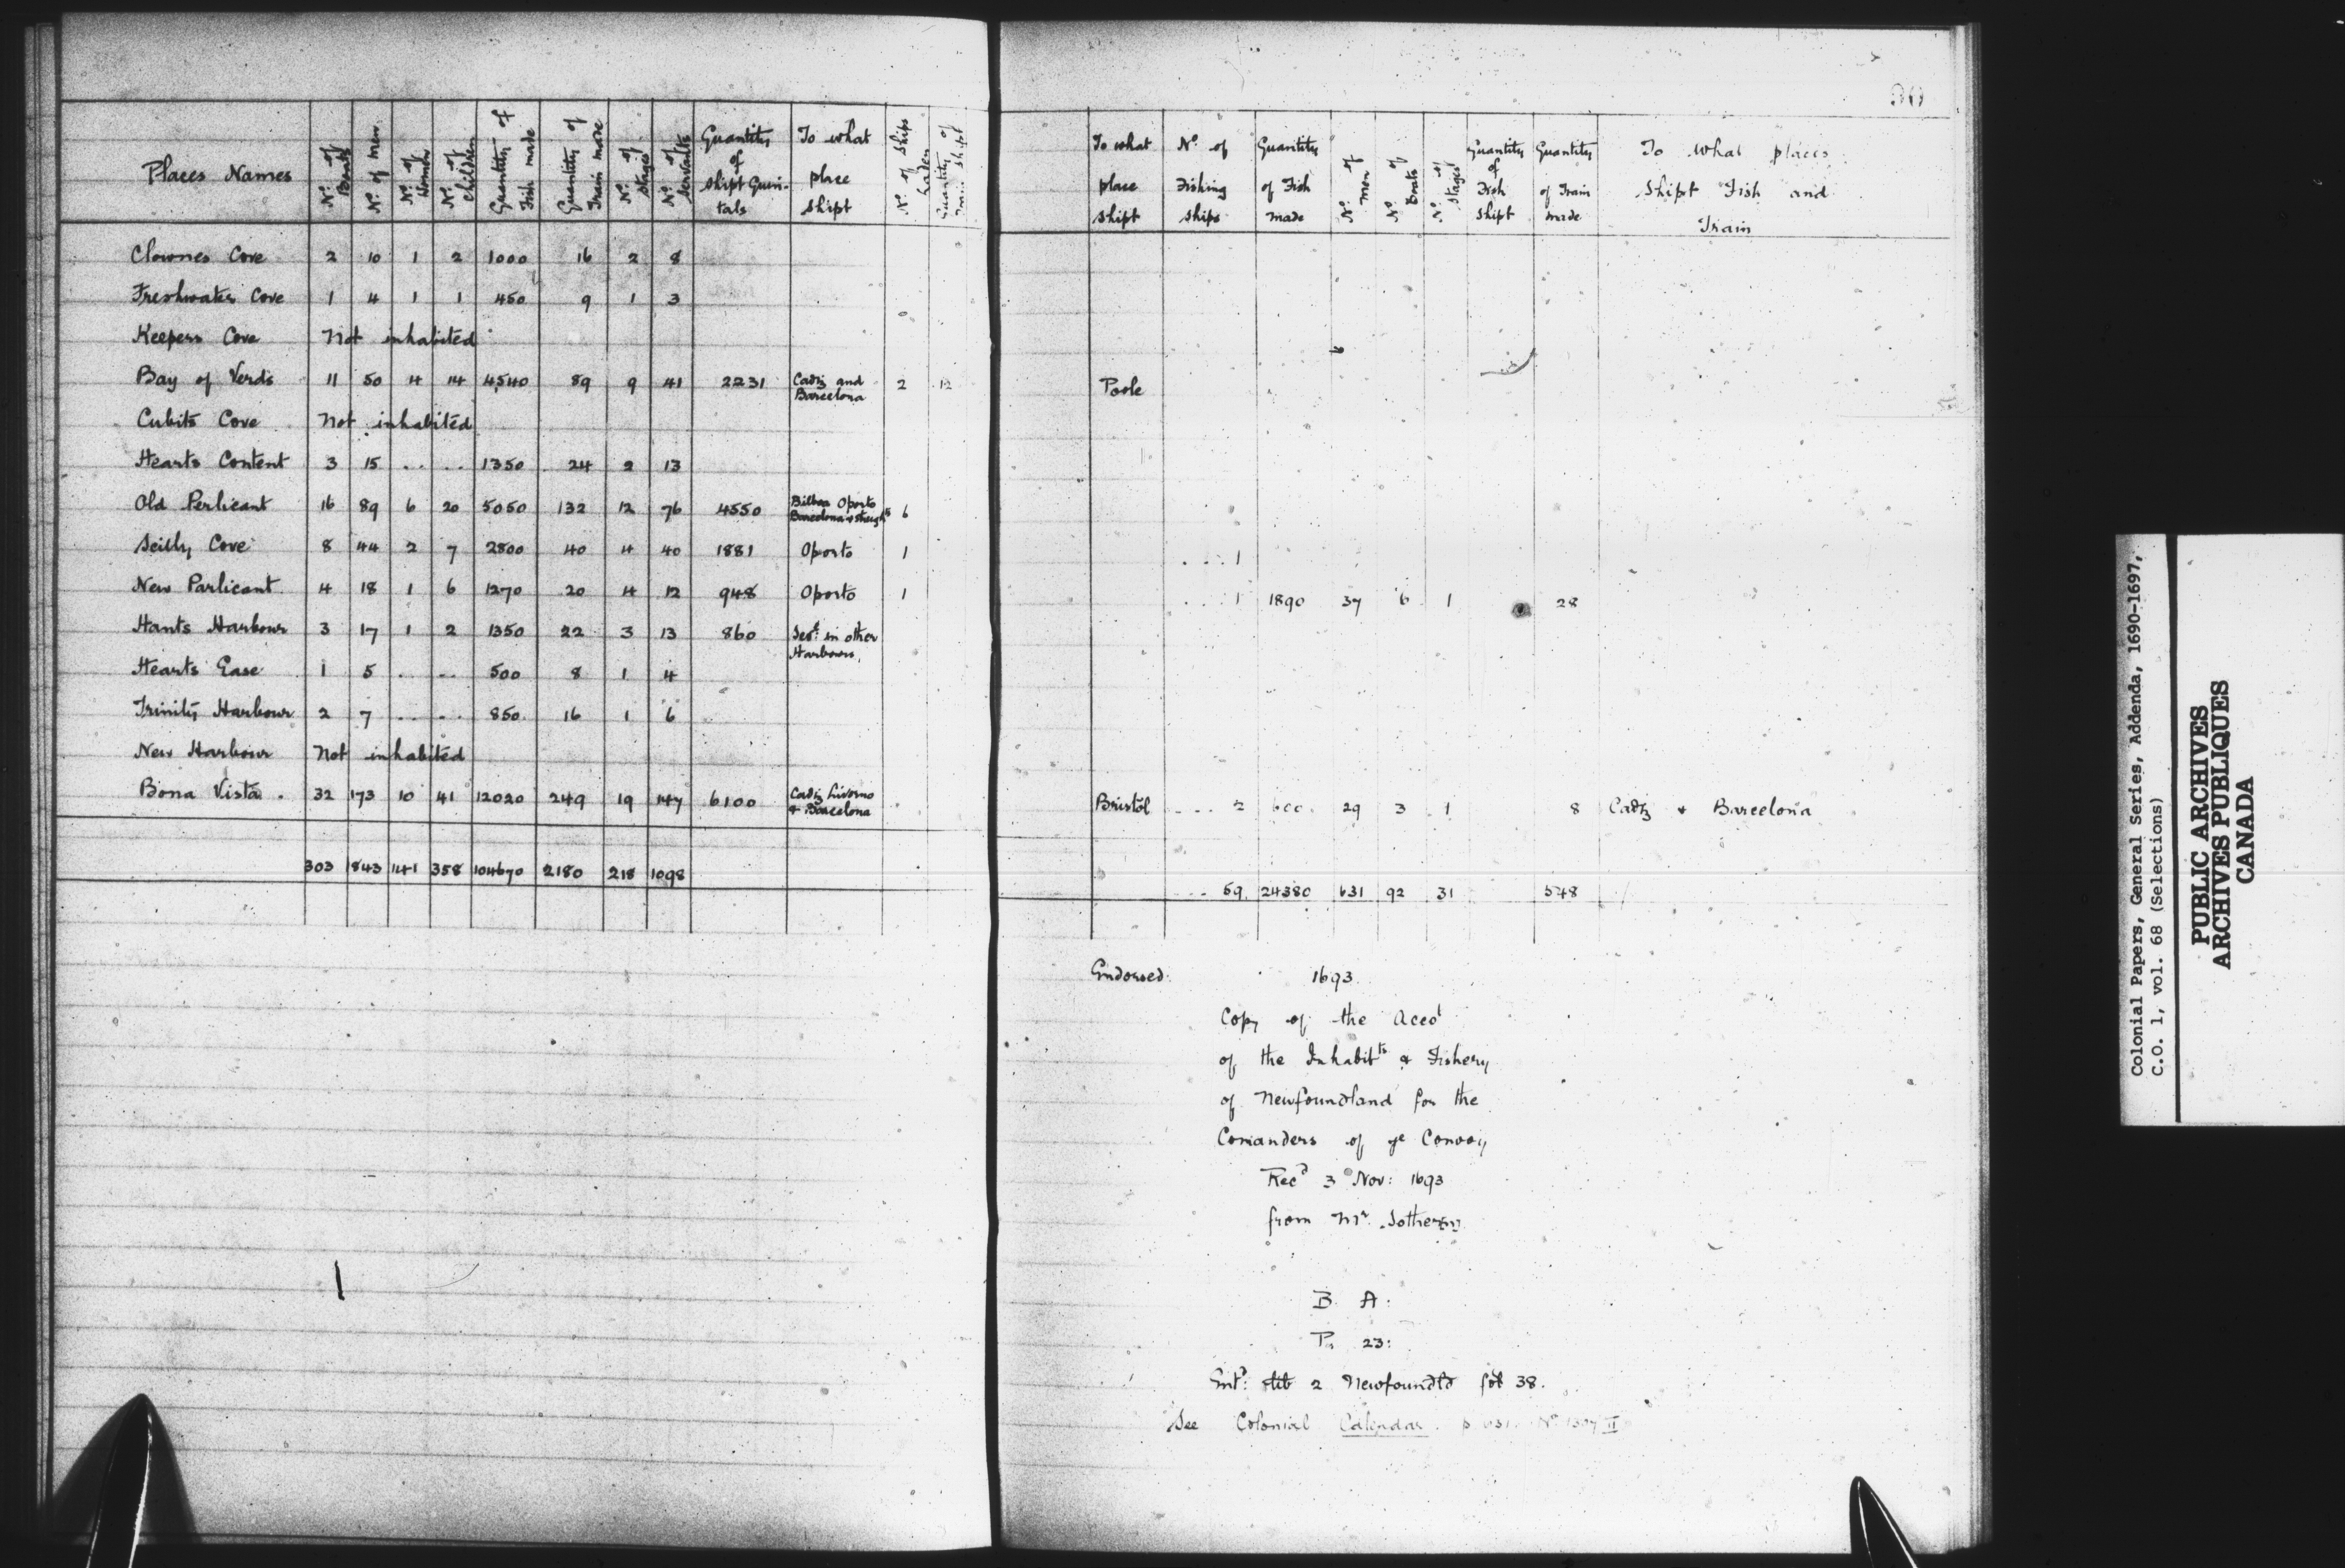 Places Names | No. of Boats | No. of men | No. of Women | No. of Children | Quantity of Fish made | Quantity of Train made | No. of Stages | No. of Servants | Quantity of Shipt Quintals | To what place Shipt | No. of Ships Laden | Quantity of Train Shipt
Clownes Cove 2 10 1 2 1000 16 2 8
Freshwater Cove 1 4 1 1 450 9 1 3
Keepers Cove Not inhabited
Bay of Verds 11 50 4 14 4540 89 9 41 2231 Cadiz and Barcelona 2 12
Cubits Cove Not inhabited
Hearts Content 3 15 .. .. 1350 24 2 13
Old Perlicant 16 89 6 20 5050 132 12 76 4550 Bilboa Oporto Barcelona & Streights 6
Scilly Cove 8 44 2 7 2800 40 4 40 1881 Oporto 1
New Parlicant 4 18 1 6 1270 20 4 12 948 Oporto 1
Hants Harbour 3 17 1 2 1350 22 3 13 860 Sevl. in other Harbours
Hearts Ease 1 5 .. .. 500 8 1 4
Trinity Harbour 2 7 .. .. 850 16 1 6
New Harbour Not inhabited
Bona Vista 32 173 10 41 12020 249 19 147 6100 Cadiz Livorno & Barcelona
303 1843 141 358 104670 2180 218 1098
To what place Shipt | No. of Fishing Ships | Quantity of Fish made | No. of Men | No. of Boats | No. of Stages | Quantity of Fish Shipt | Quantity of Train made | To what places Shipt Fish and Train
Poole
... 1
.. 1 1890 37 6 1 28
Bristol ... 2 600 29 3 1 8 Cadiz & Barcelona
... 59 24380 631 92 31 548
Endorsed. 1693.
Copy of the Accot
of the Inhabits & Fishery
of Newfoundland for the
Comanders of ye Convoy
Recd 3° Nov: 1693
from Mr. Sothern
B. A:
P. 23:
Entd: lib 2 Newfoundld fol 38.
See Colonial Calendar. p No 1307 II
Colonial Papers, General Series, Addenda, 1690-1697,
C.O. 1, vol. 68 (Selections)
PUBLIC ARCHIVES
ARCHIVES PUBLIQUES
CANADA